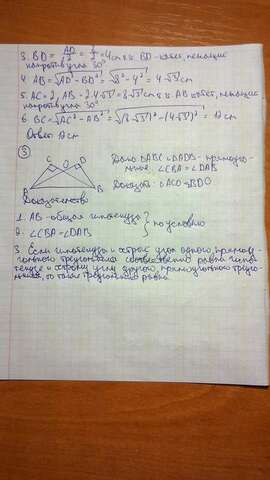 3. BD = AD/2 = 8/2 = 4см т.к BD - катет, лежащий
напротив угла 30°
4. AB = √AD² - BD² = √8² - 4² = 4√3 см
5. AC = 2, AB = 2·4√3 = 8√3 см т.к AB катет, лежащий
напротив угла 30°
6. BC = √AC² - AB² = √(8√3)² - (4√3)² = 12 см
Ответ: 12 см
③
C O D
A B
Дано: △ABC и △ADB - прямоуголь-
ные ∠CBA = ∠DAB
Доказать: △ACO = △BDO
Доказательство
1. AB - общая гипотенуза
2. ∠CBA = ∠DAB
} по условию
3. Если гипотенуза и острый угол одного прямоу-
гольного треугольника соответственно равны гипо-
тенузе и острому углу другого, прямоугольного треуго-
льника, то такие треугольники равны